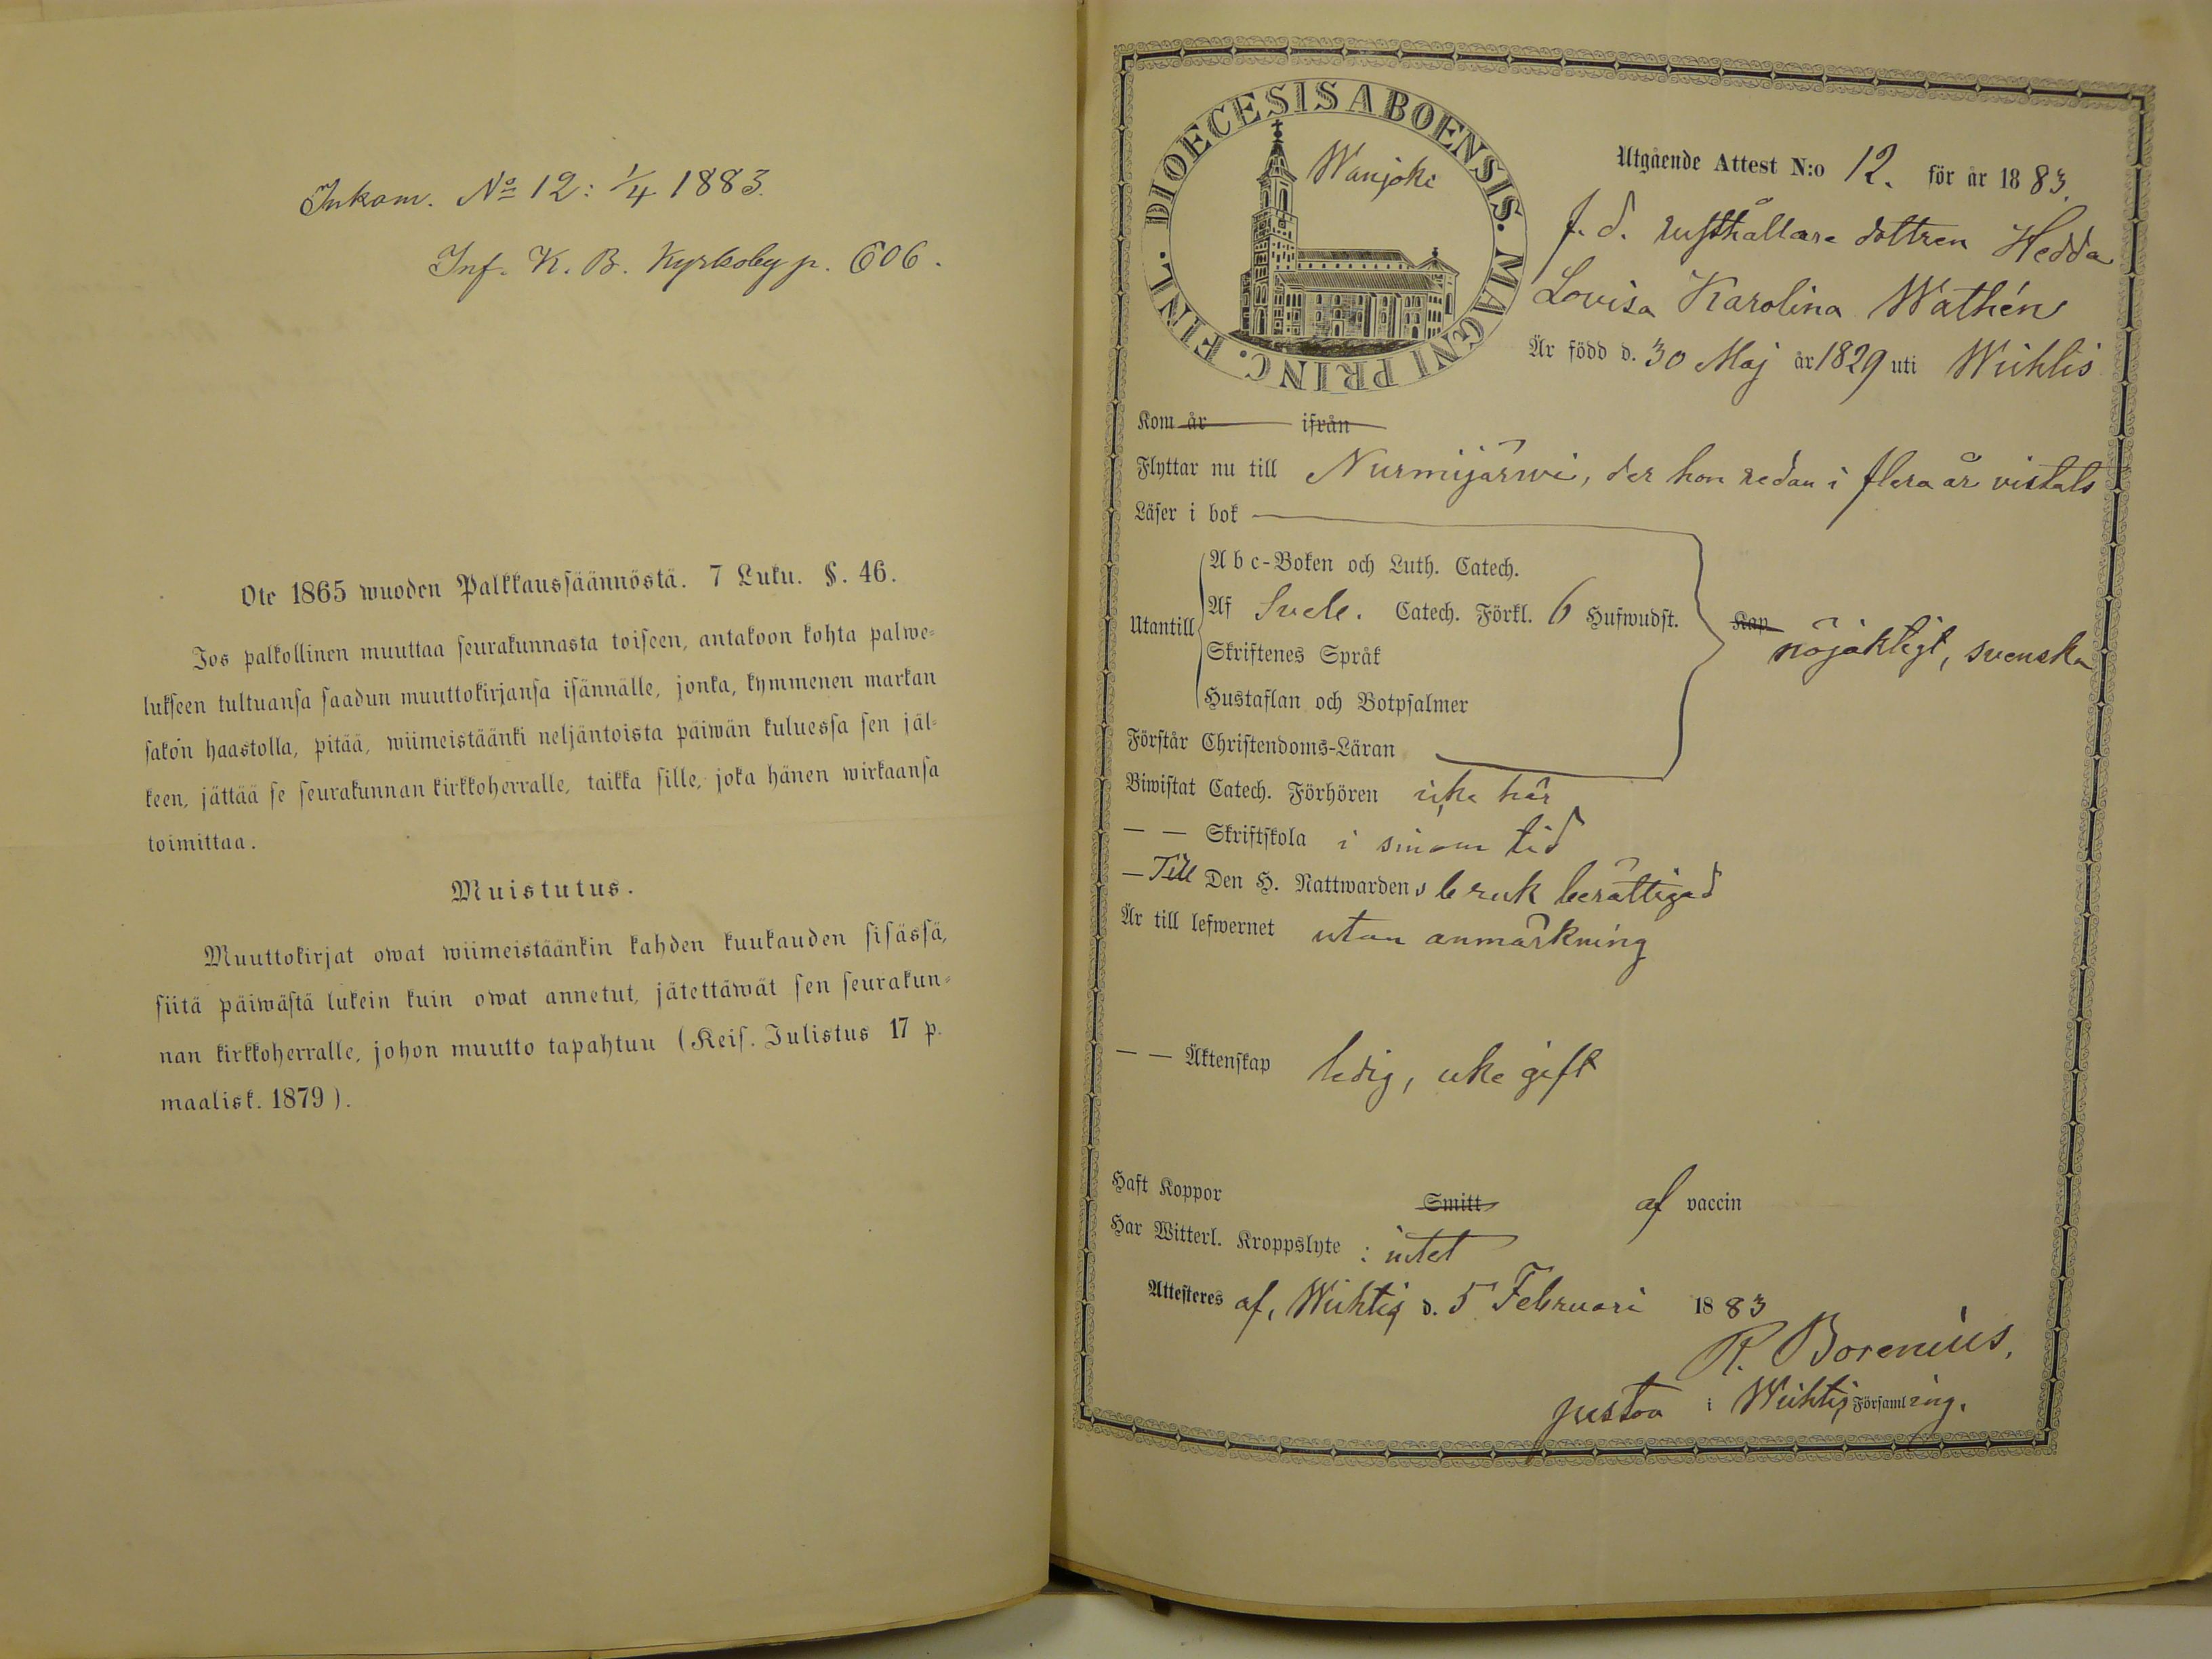 Inkom. No 12: 1/4 1883.
Inf. K. B. Kyrkoby p. 606.
Ote 1865 wuoden Palkkaussäännöstä. 7 Luku. §. 46.
Jos palkollinen muuttaa seurakunnasta toiseen, antakoon kohta palwe-
lukseen tultuansa saadun muuttokirjansa isännälle, jonka, kymmenen markan
sakon haastolla, pitää, wiimeistäänki neljäntoista päiwän kuluessa sen jäl-
keen, jättää se seurakunnan kirkkoherralle, taikka sille, joka hänen wirkaansa
toimittaa.
Muistutus.
Muuttokirjat owat wiimeistäänkin kahden kuukauden sisässä,
siitä päiwästä lukein kuin owat annetut, jätettäwät sen seurakun-
nan kirkkoherralle, johon muutto tapahtuu (Keis. Julistus 17 p.
maalisk. 1879).
DIOECESIS ABOENSIS. MAGNI PRINC. FINL.
Wanjoki
Utgående Attest N:o 12. för år 1883.
f. d. rusthållare dottren Hedda
Lovisa Karolina Wathén
Är född d. 30 Maj år 1829 uti Wichtis
Kom år ifrån
Flyttar nu till Nurmijärwi, der hon redan i flera år vistats
Läser i bok
Abc-Boken och Luth. Catech.
Utantill Af Sveb. Catech. Förkl. 6 Hufwudst. Kap nöjaktigt, svenska
Skriftenes Språk
Hustaflan och Botpsalmer
Förstår Christendoms-Läran
Biwistat Catech. Förhören icke här
— — Skriftskola i sinom tid
— Till Den H. Nattwardens bruk berättigad
Är till lefwernet utan anmärkning
— — Äktenskap ledig, icke gift
Haft Koppor Smitt af vaccin
Har Witterl. Kroppslyte : intet
Attesteres af, Wichtis d. 5 Februari 1883
R. Borenius,
pastor i Wichtis Församling.